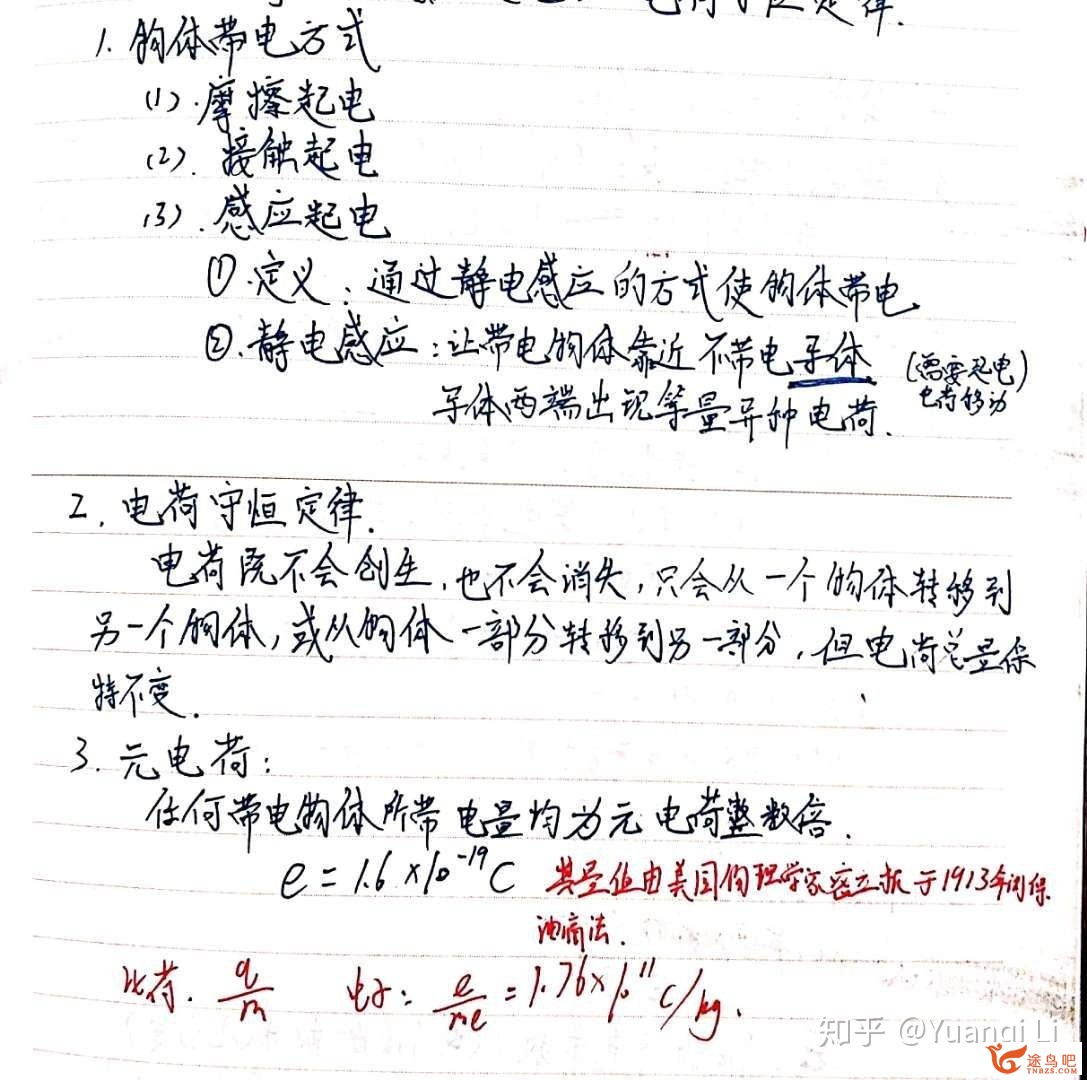 电荷守恒定律.
1. 物体带电方式
(1). 摩擦起电
(2). 接触起电
(3). 感应起电
①.定义：通过静电感应的方式使物体带电
②.静电感应：让带电物体靠近不带电导体
(需要起电
电荷移动)
导体两端出现等量异种电荷.
2. 电荷守恒定律.
电荷既不会创生，也不会消失，只会从一个物体转移到
另一个物体，或从物体一部分转移到另一部分，但电荷总量保
持不变.
3. 元电荷：
任何带电物体所带电量均为元电荷整数倍.
e = 1.6 ×10⁻¹⁹ C 其量值由美国物理学家密立根于1913年测得
油滴法.
比荷. q/m 电子: e/me = 1.76×10¹¹ C/kg.
知乎 @Yuanqi Li
途鸟吧
TNBZS.COM